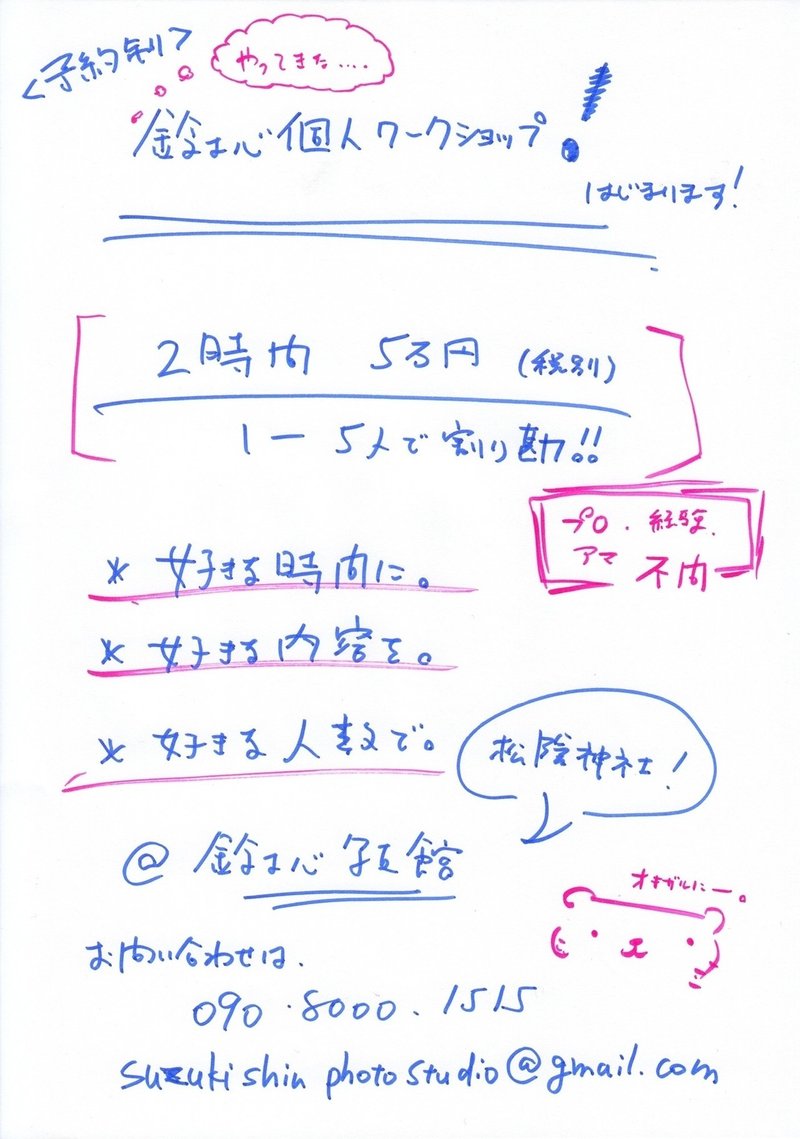 <予約制>
やってきた....
鈴木心個人ワークショップ!
はじまります!
2時間 5万円 (税別)
1-5人で割り勘!!
プロ・経験
アマ 不問
* 好きな時間に。
* 好きな内容を。
* 好きな人数で。
松陰神社!
@ 鈴木心写真館
オキガルにー。
お問い合わせは、
090.8000.1515
suzukishinphotostudio@gmail.com